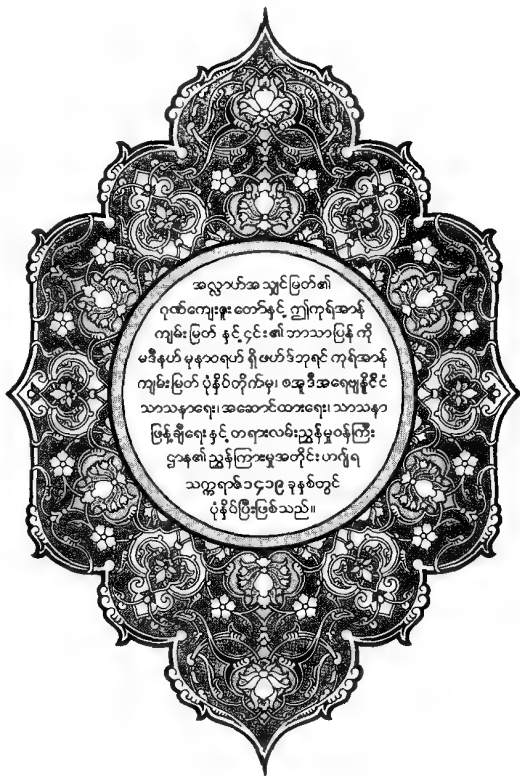 အလ္လာဟ်အသျှင်မြတ်၏
ဂုဏ်ကျေးဇူးတော်နှင့် ဤကုရ်အာန်
ကျမ်းမြတ် နှင့်၎င်း၏ဘာသာပြန်ကို
မဒီနဟ်မုနာဝရဟ် ရှိဖဟ်ဒ်ဘုရင်ကုရ်အာန်
ကျမ်းမြတ် ပုံနှိပ်တိုက်မှ၊ စအူဒီအရေဗျနိုင်ငံ
သာသနာရေး၊အဆောင်ထားရေး၊သာသနာ
ဖြန့်ချီရေးနှင့်တရားလမ်းညွှန်မှုဝန်ကြီး
ဌာန၏ညွှန်ကြားမှုအတိုင်းဟဂျ်ရ
သက္ကရာဇ်၁၄၃၉ ခုနှစ်တွင်
ပုံနှိပ်ပြီးဖြစ်သည်။